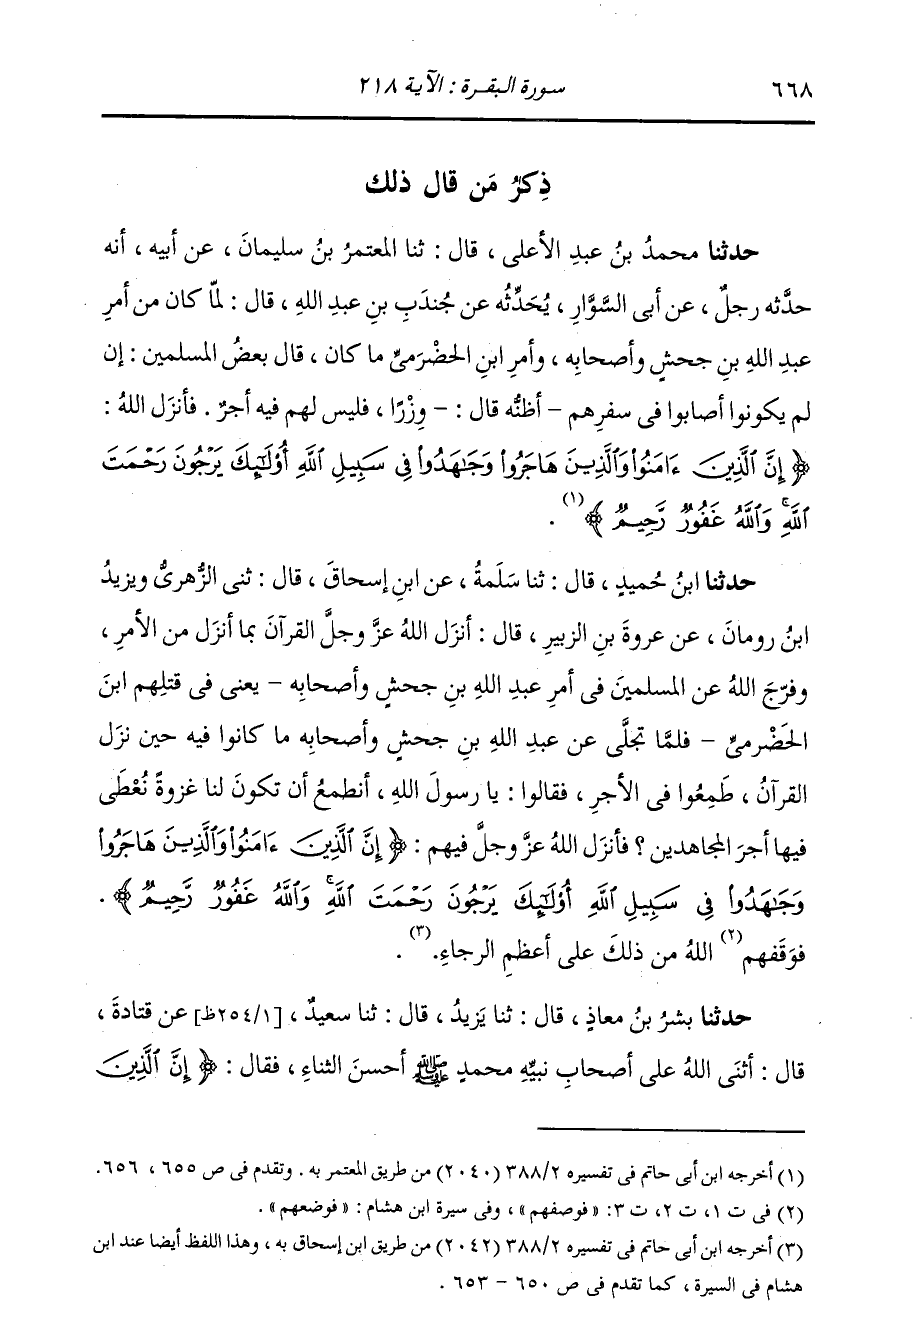 ٦٦٨
سورة البقرة : الآية ٢١٨
ذِكرُ مَن قال ذلك
حدثنا محمدُ بنُ عبدِ الأعلى ، قال : ثنا المعتمرُ بنُ سليمانَ ، عن أبيه ، أنه
حدَّثه رجلٌ ، عن أبى السَّوَّارِ ، يُحَدِّثُه عن جُندَبِ بنِ عبدِ اللهِ ، قال : لمّا كان من أمرِ
عبدِ اللهِ بنِ جحشٍ وأصحابِه ، وأمرِ ابنِ الحَضْرَمىِّ ما كان ، قال بعضُ المسلمين : إن
لم يكونوا أصابوا فى سفرِهم – أظنُّه قال : – وِزْرًا ، فليس لهم فيه أجرٌ . فأنزَل اللهُ :
﴿ إِنَّ ٱلَّذِينَ ءَامَنُوا۟ وَٱلَّذِينَ هَاجَرُوا۟ وَجَٰهَدُوا۟ فِى سَبِيلِ ٱللَّهِ أُو۟لَٰٓئِكَ يَرْجُونَ رَحْمَتَ
ٱللَّهِ ۚ وَٱللَّهُ غَفُورٌ رَّحِيمٌ ﴾(١) .
حدثنا ابنُ حُميدٍ ، قال : ثنا سَلَمةُ ، عن ابنِ إسحاقَ ، قال : ثنى الزُّهرىُّ ويزيدُ
ابنُ رومانَ ، عن عروةَ بنِ الزبيرِ ، قال : أنزَل اللهُ عزَّ وجلَّ القرآنَ بما أنزَل من الأمرِ ،
وفرّجَ اللهُ عن المسلمينَ فى أمرِ عبدِ اللهِ بنِ جحشٍ وأصحابِه – يعنى فى قتلِهم ابنَ
الحَضْرمىِّ – فلمَّا تجلَّى عن عبدِ اللهِ بنِ جحشٍ وأصحابِه ما كانوا فيه حين نزَل
القرآنُ ، طَمِعُوا فى الأجرِ ، فقالوا : يا رسولَ اللهِ ، أنطمعُ أن تكونَ لنا غزوةً نُعْطَى
فيها أجرَ المجاهدين ؟ فأنزَل اللهُ عزَّ وجلَّ فيهم : ﴿ إِنَّ ٱلَّذِينَ ءَامَنُوا۟ وَٱلَّذِينَ هَاجَرُوا۟
وَجَٰهَدُوا۟ فِى سَبِيلِ ٱللَّهِ أُو۟لَٰٓئِكَ يَرْجُونَ رَحْمَتَ ٱللَّهِ ۚ وَٱللَّهُ غَفُورٌ رَّحِيمٌ ﴾ .
فوَقَفهم(٢) اللهُ من ذلكَ على أعظمِ الرجاءِ.(٣) .
حدثنا بشرُ بنُ معاذٍ ، قال : ثنا يَزيدُ ، قال : ثنا سعيدٌ ، [٢٥٤/١ظ] عن قتادةَ ،
قال : أثنَى اللهُ على أصحابِ نبيِّه محمدٍ ﷺ أحسنَ الثناءِ ، فقال : ﴿ إِنَّ ٱلَّذِينَ
(١) أخرجه ابن أبى حاتم فى تفسيره ٣٨٨/٢ (٢٠٤٠) من طريق المعتمر به . وتقدم فى ص ٦٥٥ ، ٦٥٦.
(٢) فى ت ١، ت ٢، ت ٣: « فوصفهم » ، وفى سيرة ابن هشام : « فوضعهم » .
(٣) أخرجه ابن أبى حاتم فى تفسيره ٣٨٨/٢ (٢٠٤٢) من طريق ابن إسحاق به ، وهذا اللفظ أيضا عند ابن
هشام فى السيرة ، كما تقدم فى ص ٦٥٠ – ٦٥٣ .